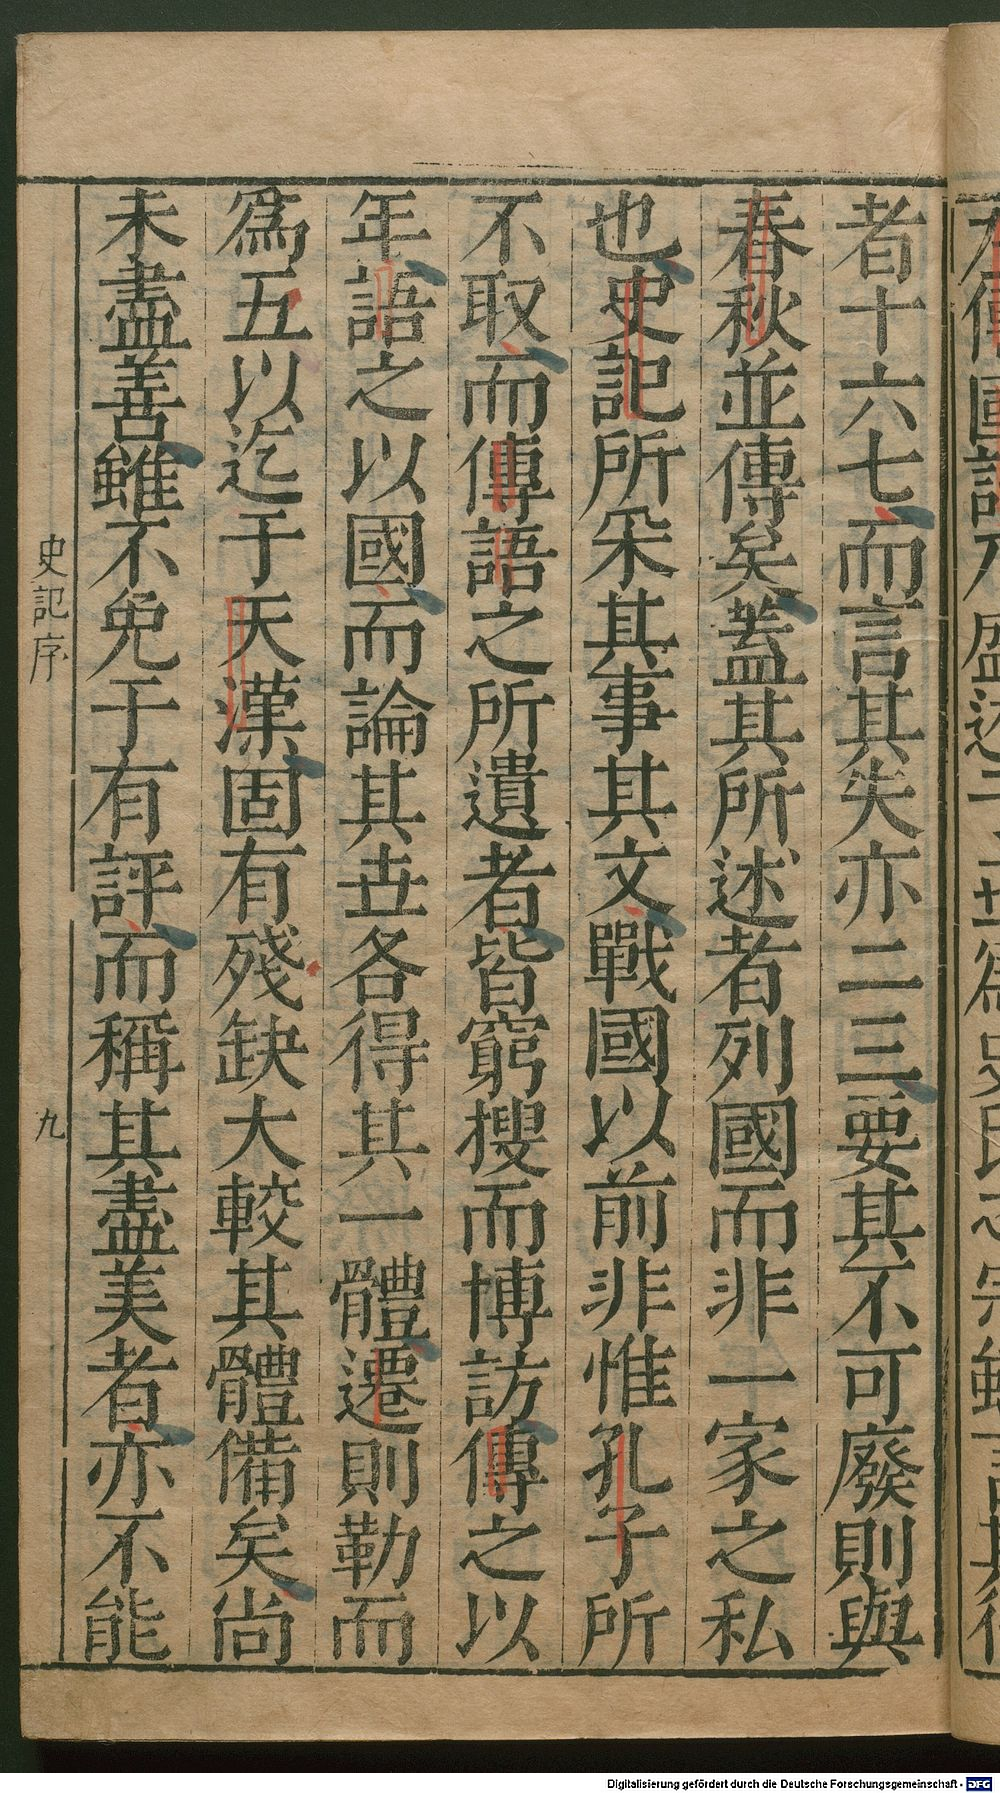 者十六七而言其失亦二三要其不可廢則與
春秋並傳矣蓋其所述者列國而非一家之私
也史記所采其事其文戰國以前非惟孔子所
不取而傳語之所遺者皆窮搜而博訪傳之以
年語之以國而論其世各得其一體遷則勒而
爲五以迄于天漢固有殘缺大較其體備矣尚
未盡善雖不免于有評而稱其盡美者亦不能
史記序
九
Digitalisierung gefördert durch die Deutsche Forschungsgemeinschaft - DFG